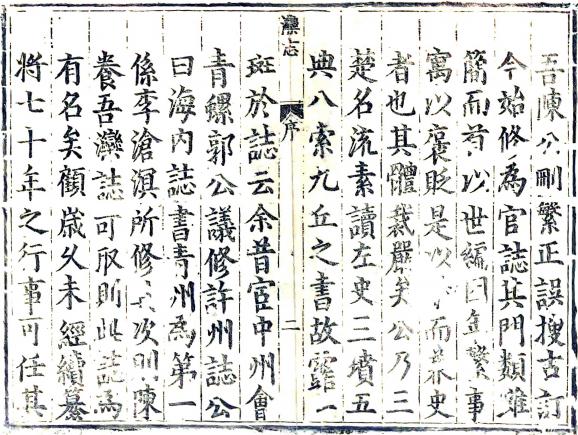 吾陳公刪繁正誤搜古訂
今始修為官誌其門類雖
簡而首以世編因年繫事
寓以褒貶是以而兼史
者也其體裁嚴矣公乃三
楚名流素讀左史三墳五
典八索九丘之書故露一
灤志
序
二
斑於誌云余昔宦中州會
青螺郭公議修許州誌公
曰海內誌書青州為第一
係李滄溟所修其次則陳
養吾灤誌可取則此誌為
有名矣顧歲久未經續纂
將七十年之行事可任其